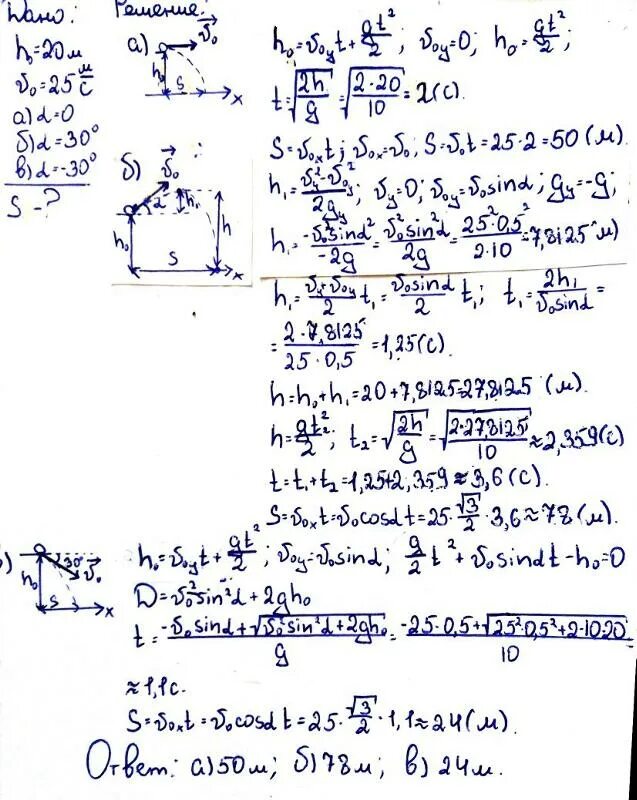 Дано:
h₀=20м
v₀=25 м/с
а) α=0
б) α=30°
в) α=-30°
S-?
Решение:
а) v⃗₀
h₀
S
x
h₀=v₀yt+gt²/2; v₀y=0; h₀=gt²/2;
t=√(2h/g)=√(2·20/10)=2(с).
S=v₀xt; v₀x=v₀; S=v₀t=25·2=50(м).
б) v⃗₀
α
h₁
h₀
h
S
x
h₁=(vy²-v₀y²)/2gy; vy=0; v₀y=v₀sinα; gy=-g;
h₁=-v₀²sinα²/-2g=v₀²sin²α/2g=25²·0,5²/2·10=7,8125(м)
h₁=(vy+v₀y)/2 t₁=v₀sinα/2 t₁; t₁=2h₁/v₀sinα=
=2·7,8125/25·0,5=1,25(с).
h=h₀+h₁=20+7,8125=27,8125(м).
h=gt₂²/2; t₂=√(2h/g)=√(2·27,8125/10)≈2,359(с)
t=t₁+t₂=1,25+2,359≈3,6(с).
S=v₀xt=v₀cosαt=25·√3/2·3,6≈78(м).
)
30°
v⃗₀
h₀
S
x
h₀=v₀yt+gt²/2; v₀y=v₀sinα; g/2 t²+v₀sinαt-h₀=0
D=v₀²sin²α+2gh₀
t=(-v₀sinα+√(v₀²sin²α+2gh₀))/g=(-25·0,5+√(25²·0,5²+2·10·20))/10
≈1,1с.
S=v₀xt=v₀cosαt=25·√3/2·1,1≈24(м).
Ответ: а) 50м; б) 78м; в) 24м.